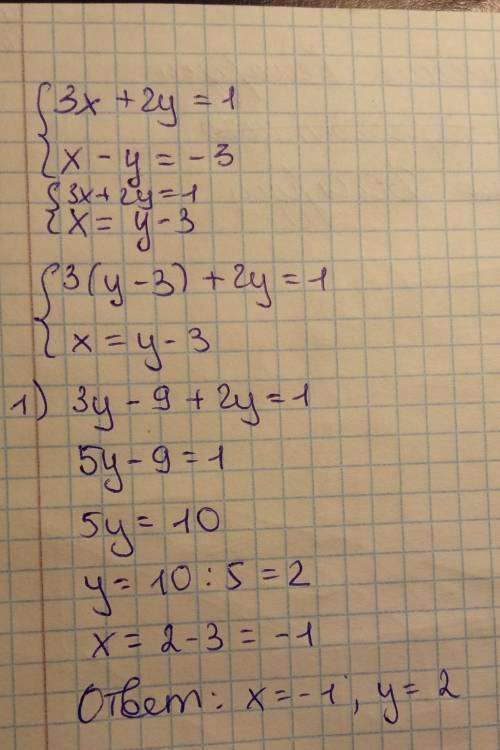 3x + 2y = 1
x - y = -3
3x + 2y = 1
x = y - 3
3(y - 3) + 2y = 1
x = y - 3
1) 3y - 9 + 2y = 1
5y - 9 = 1
5y = 10
y = 10 : 5 = 2
x = 2 - 3 = -1
Ответ: x = -1, y = 2